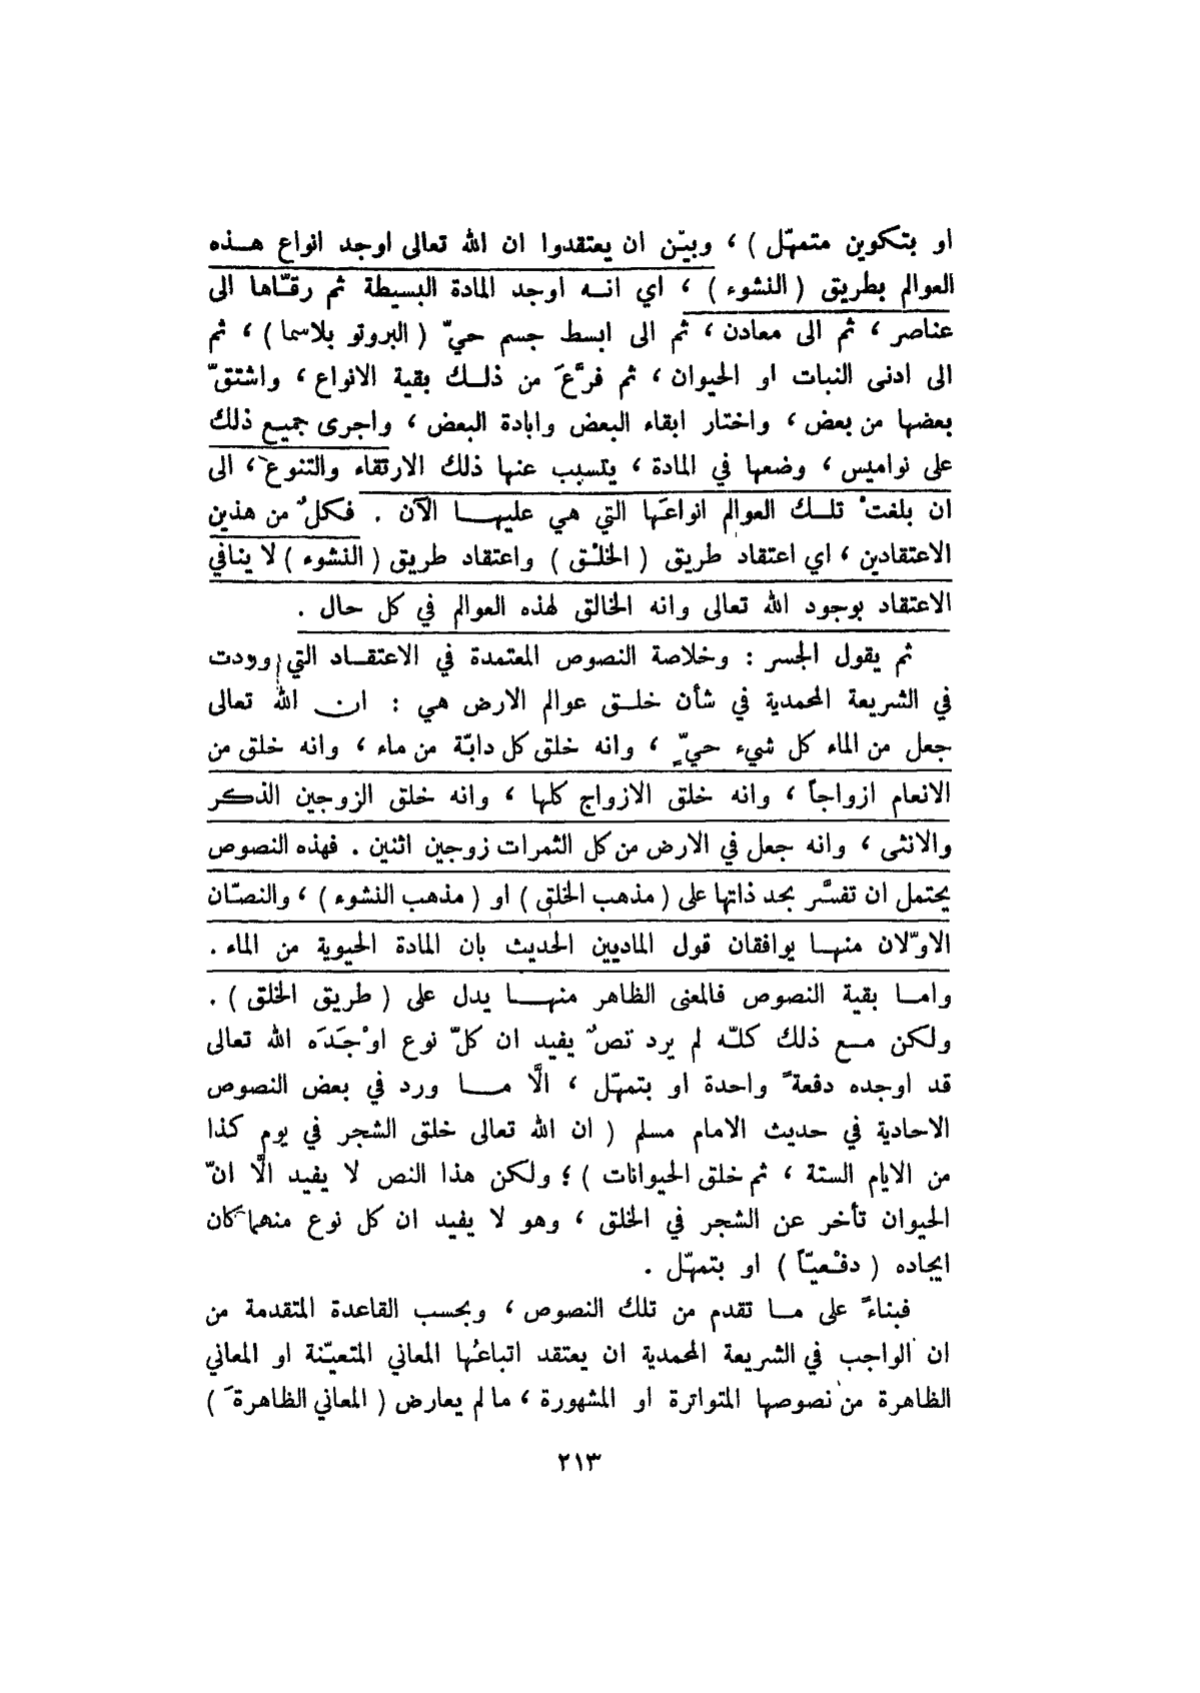 او بتكوين متمهّل ) ، وبيّن ان يعتقدوا ان الله تعالى اوجد انواع هـذه
العوالم بطريق ( النشوء ) ، اي انـه اوجد المادة البسيطة ثم رقّاها الى
عناصر ، ثم الى معادن ، ثم الى ابسط جسم حيّ ( البروتو بلاسما ) ، ثم
الى ادنى النبات او الحيوان ، ثم فرَّعَ من ذلـك بقية الانواع ، واشتقّ
بعضها من بعض ، واختار ابقاء البعض وابادة البعض ، واجرى جميع ذلك
على نواميس ، وضعها في المادة ، يتسبب عنها ذلك الارتقاء والتنوع ، الى
ان بلغتْ تلـك العوالم انواعَها التي هي عليهـا الآن . فكلٌ من هذين
الاعتقادين ، اي اعتقاد طريق ( الخلْق ) واعتقاد طريق ( النشوء ) لا ينافي
الاعتقاد بوجود الله تعالى وانه الخالق لهذه العوالم في كل حال .
ثم يقول الجسر : وخلاصة النصوص المعتمدة في الاعتقـاد التي وردت
في الشريعة المحمدية في شأن خلـق عوالم الارض هي : ان الله تعالى
جعل من الماء كل شيء حيّ ، وانه خلق كل دابّة من ماء ، وانه خلق من
الانعام ازواجاً ، وانه خلق الازواج كلها ، وانه خلق الزوجين الذكر
والانثى ، وانه جعل في الارض من كل الثمرات زوجين اثنين . فهذه النصوص
يحتمل ان تفسَّر بحد ذاتها على ( مذهب الخلق ) او ( مذهب النشوء ) ، والنصّان
الاوّلان منهـا يوافقان قول الماديين الحديث بان المادة الحيوية من الماء .
وامـا بقية النصوص فالمعنى الظاهر منهـا يدل على ( طريق الخلق ) .
ولكن مـع ذلك كلّه لم يرد نصٌ يفيد ان كلّ نوع اوْجَدَه الله تعالى
قد اوجده دفعةً واحدة او بتمهّل ، الَّا مـا ورد في بعض النصوص
الاحادية في حديث الامام مسلم ( ان الله تعالى خلق الشجر في يوم كذا
من الايام الستة ، ثم خلق الحيوانات ) ؛ ولكن هذا النص لا يفيد الَّا انّ
الحيوان تأخر عن الشجر في الخلق ، وهو لا يفيد ان كل نوع منهما كان
ايجاده ( دفْعيّاً ) او بتمهّل .
فبناءً على مـا تقدم من تلك النصوص ، وبحسب القاعدة المتقدمة من
ان الواجب في الشريعة المحمدية ان يعتقد اتباعُها المعاني المتعيّنة او المعاني
الظاهرة من نصوصها المتواترة او المشهورة ، ما لم يعارض ( المعاني الظاهرةَ )
٢١٣